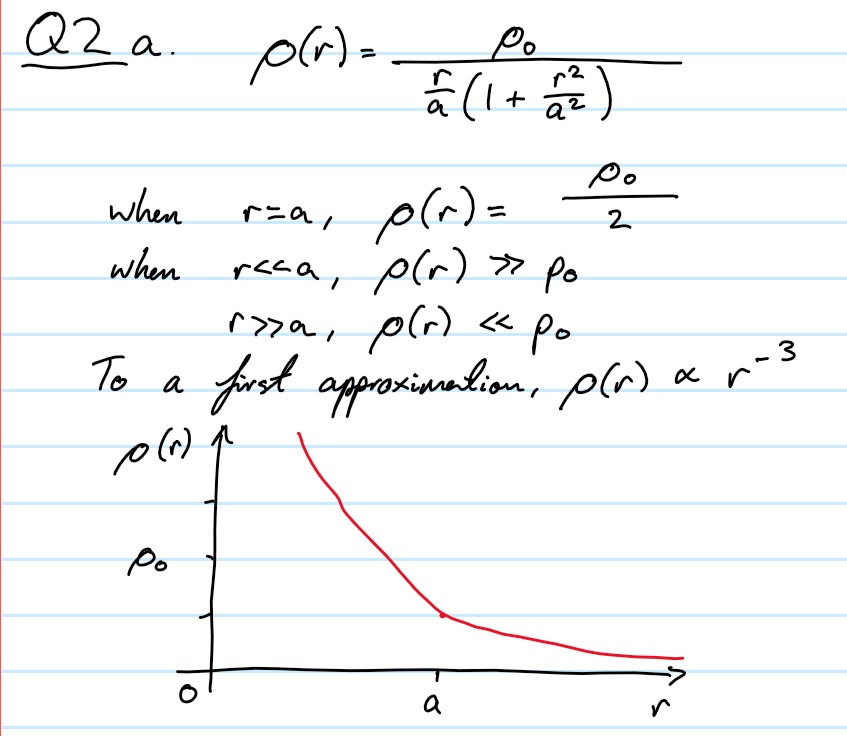 Q2 a. ρ(r) = ρ₀ / (r/a (1 + r²/a²))
when r=a, ρ(r) = ρ₀/2
when r<<a, ρ(r) >> ρ₀
r>>a, ρ(r) << ρ₀
To a first approximation, ρ(r) ∝ r⁻³
ρ(r)
ρ₀
0 a r